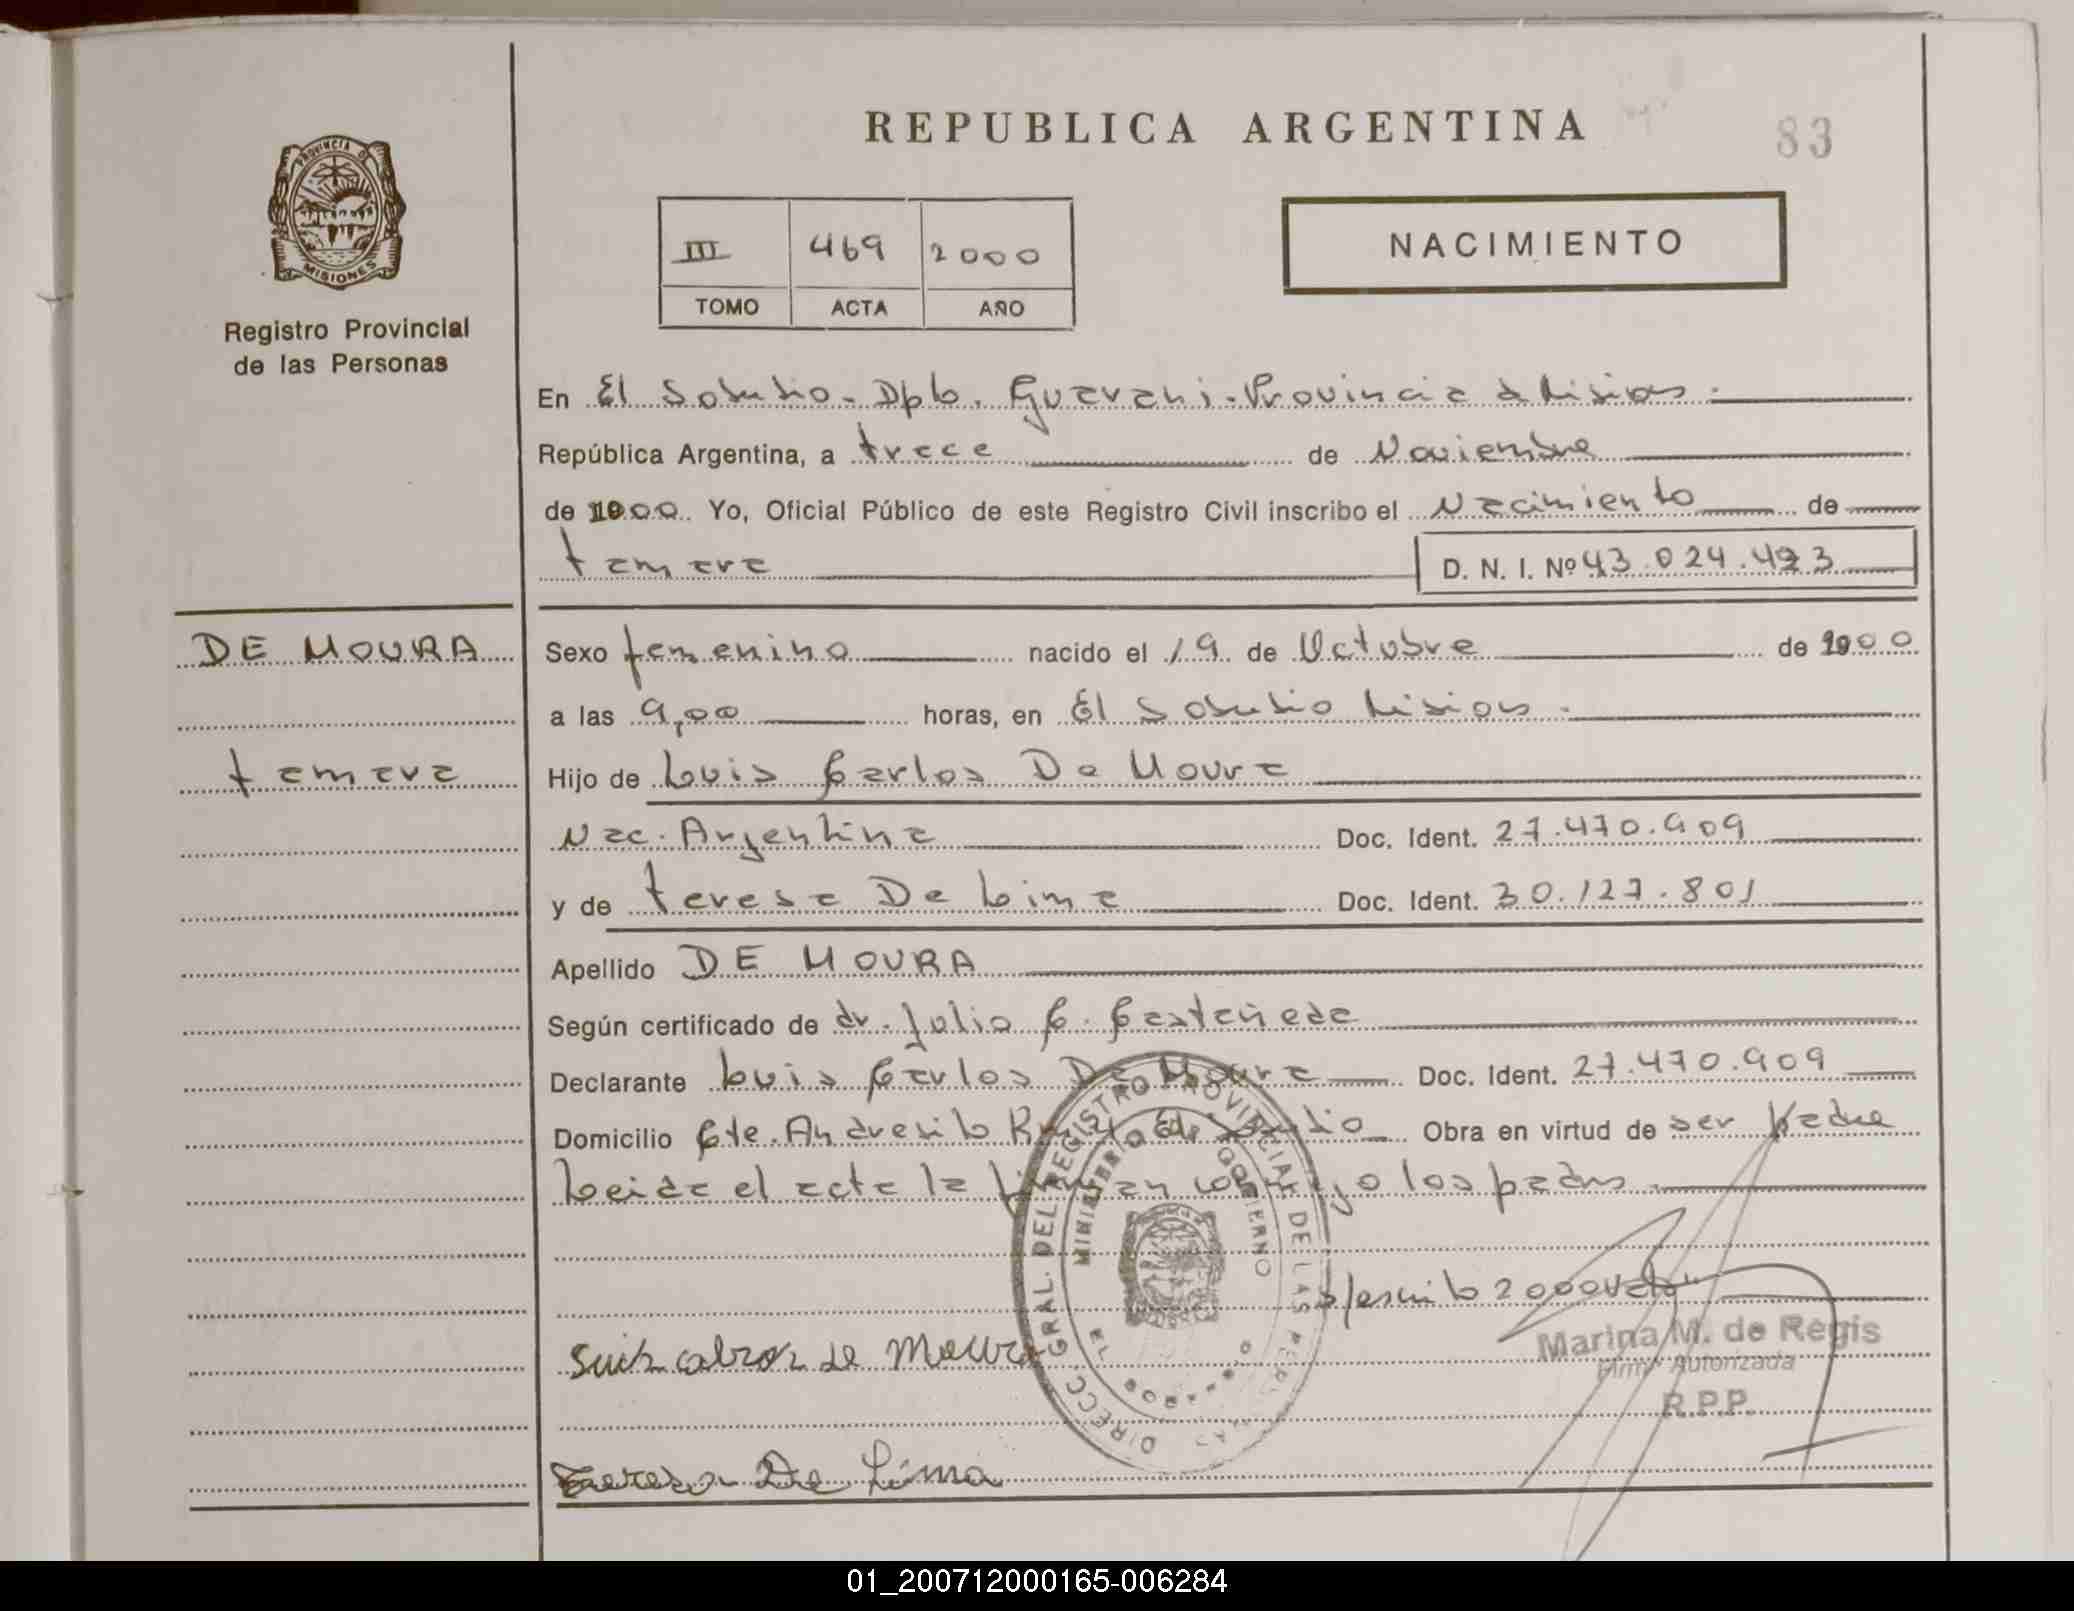 REPUBLICA ARGENTINA
83
PROVINCIA DE
MISIONES
Registro Provincial
de las Personas
III 469 2000
TOMO ACTA AÑO
NACIMIENTO
En El Soberbio - Dpto. Guarani - Provincia d Misiones.
República Argentina, a trece de Noviembre
de 2000. Yo, Oficial Público de este Registro Civil inscribo el Nacimiento de
tamara D. N. I. Nº 43.024.423
DE MOURA
tamara
Sexo femenino nacido el 19 de Octubre de 2000
a las 9,00 horas, en El Soberbio Misiones.
Hijo de Luis Carlos De Moura
Nac. Argentina Doc. Ident. 27.470.909
y de teresa De Lima Doc. Ident. 30.127.801
Apellido DE MOURA
Según certificado de dr. Julio C. Castañeda
Declarante Luis Carlos De Moura Doc. Ident. 27.470.909
Domicilio Cte. Andresito El Soberbio Obra en virtud de ser Padre
Leida el acta la firman conmigo los padres.
s/escrito 2000 Vale
Luis Carlos de Moura
Teresa De Lima
DIRECC. GRAL. DEL REGISTRO PROVINCIAL DE LAS PERSONAS
MINISTERIO GOBIERNO
EL SOBERBIO
Marina M. de Regis
Firma Autorizada
R.P.P.
01_200712000165-006284